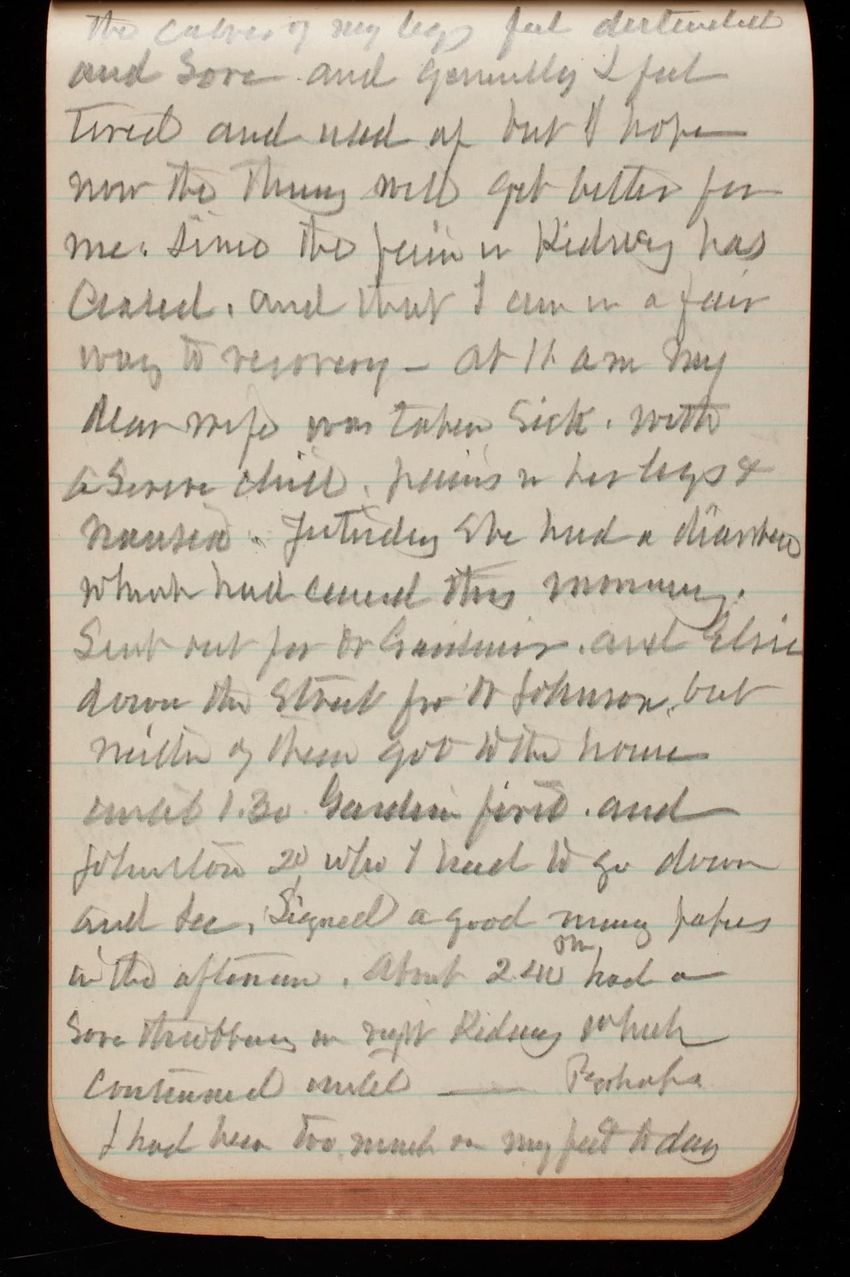 the calves of my legs feel distended
and sore and generally I feel
tired and used up but I hope
now the thing will get better for
me. Since the pain in Kidney has
Ceased. and that I am in a fair
way to recovery - at 11 am my
dear wife was taken Sick. with
a Severe chill. pains in her legs &
nausea. Yesterday She had a diarrhea
which had ceased this morning.
Sent out for Dr Gardiner. and Elsie
down the Street for Dr Johnson, but
neither of them got to the house
until 1.30 Gardin first. and
Johnston 2d who I had to go down
and see. Signed a good many papers
in the afternoon. About 2 40 pm had a
Sore throbbing in right Kidney which
continued until —— Perhaps
I had been too much on my feet to day